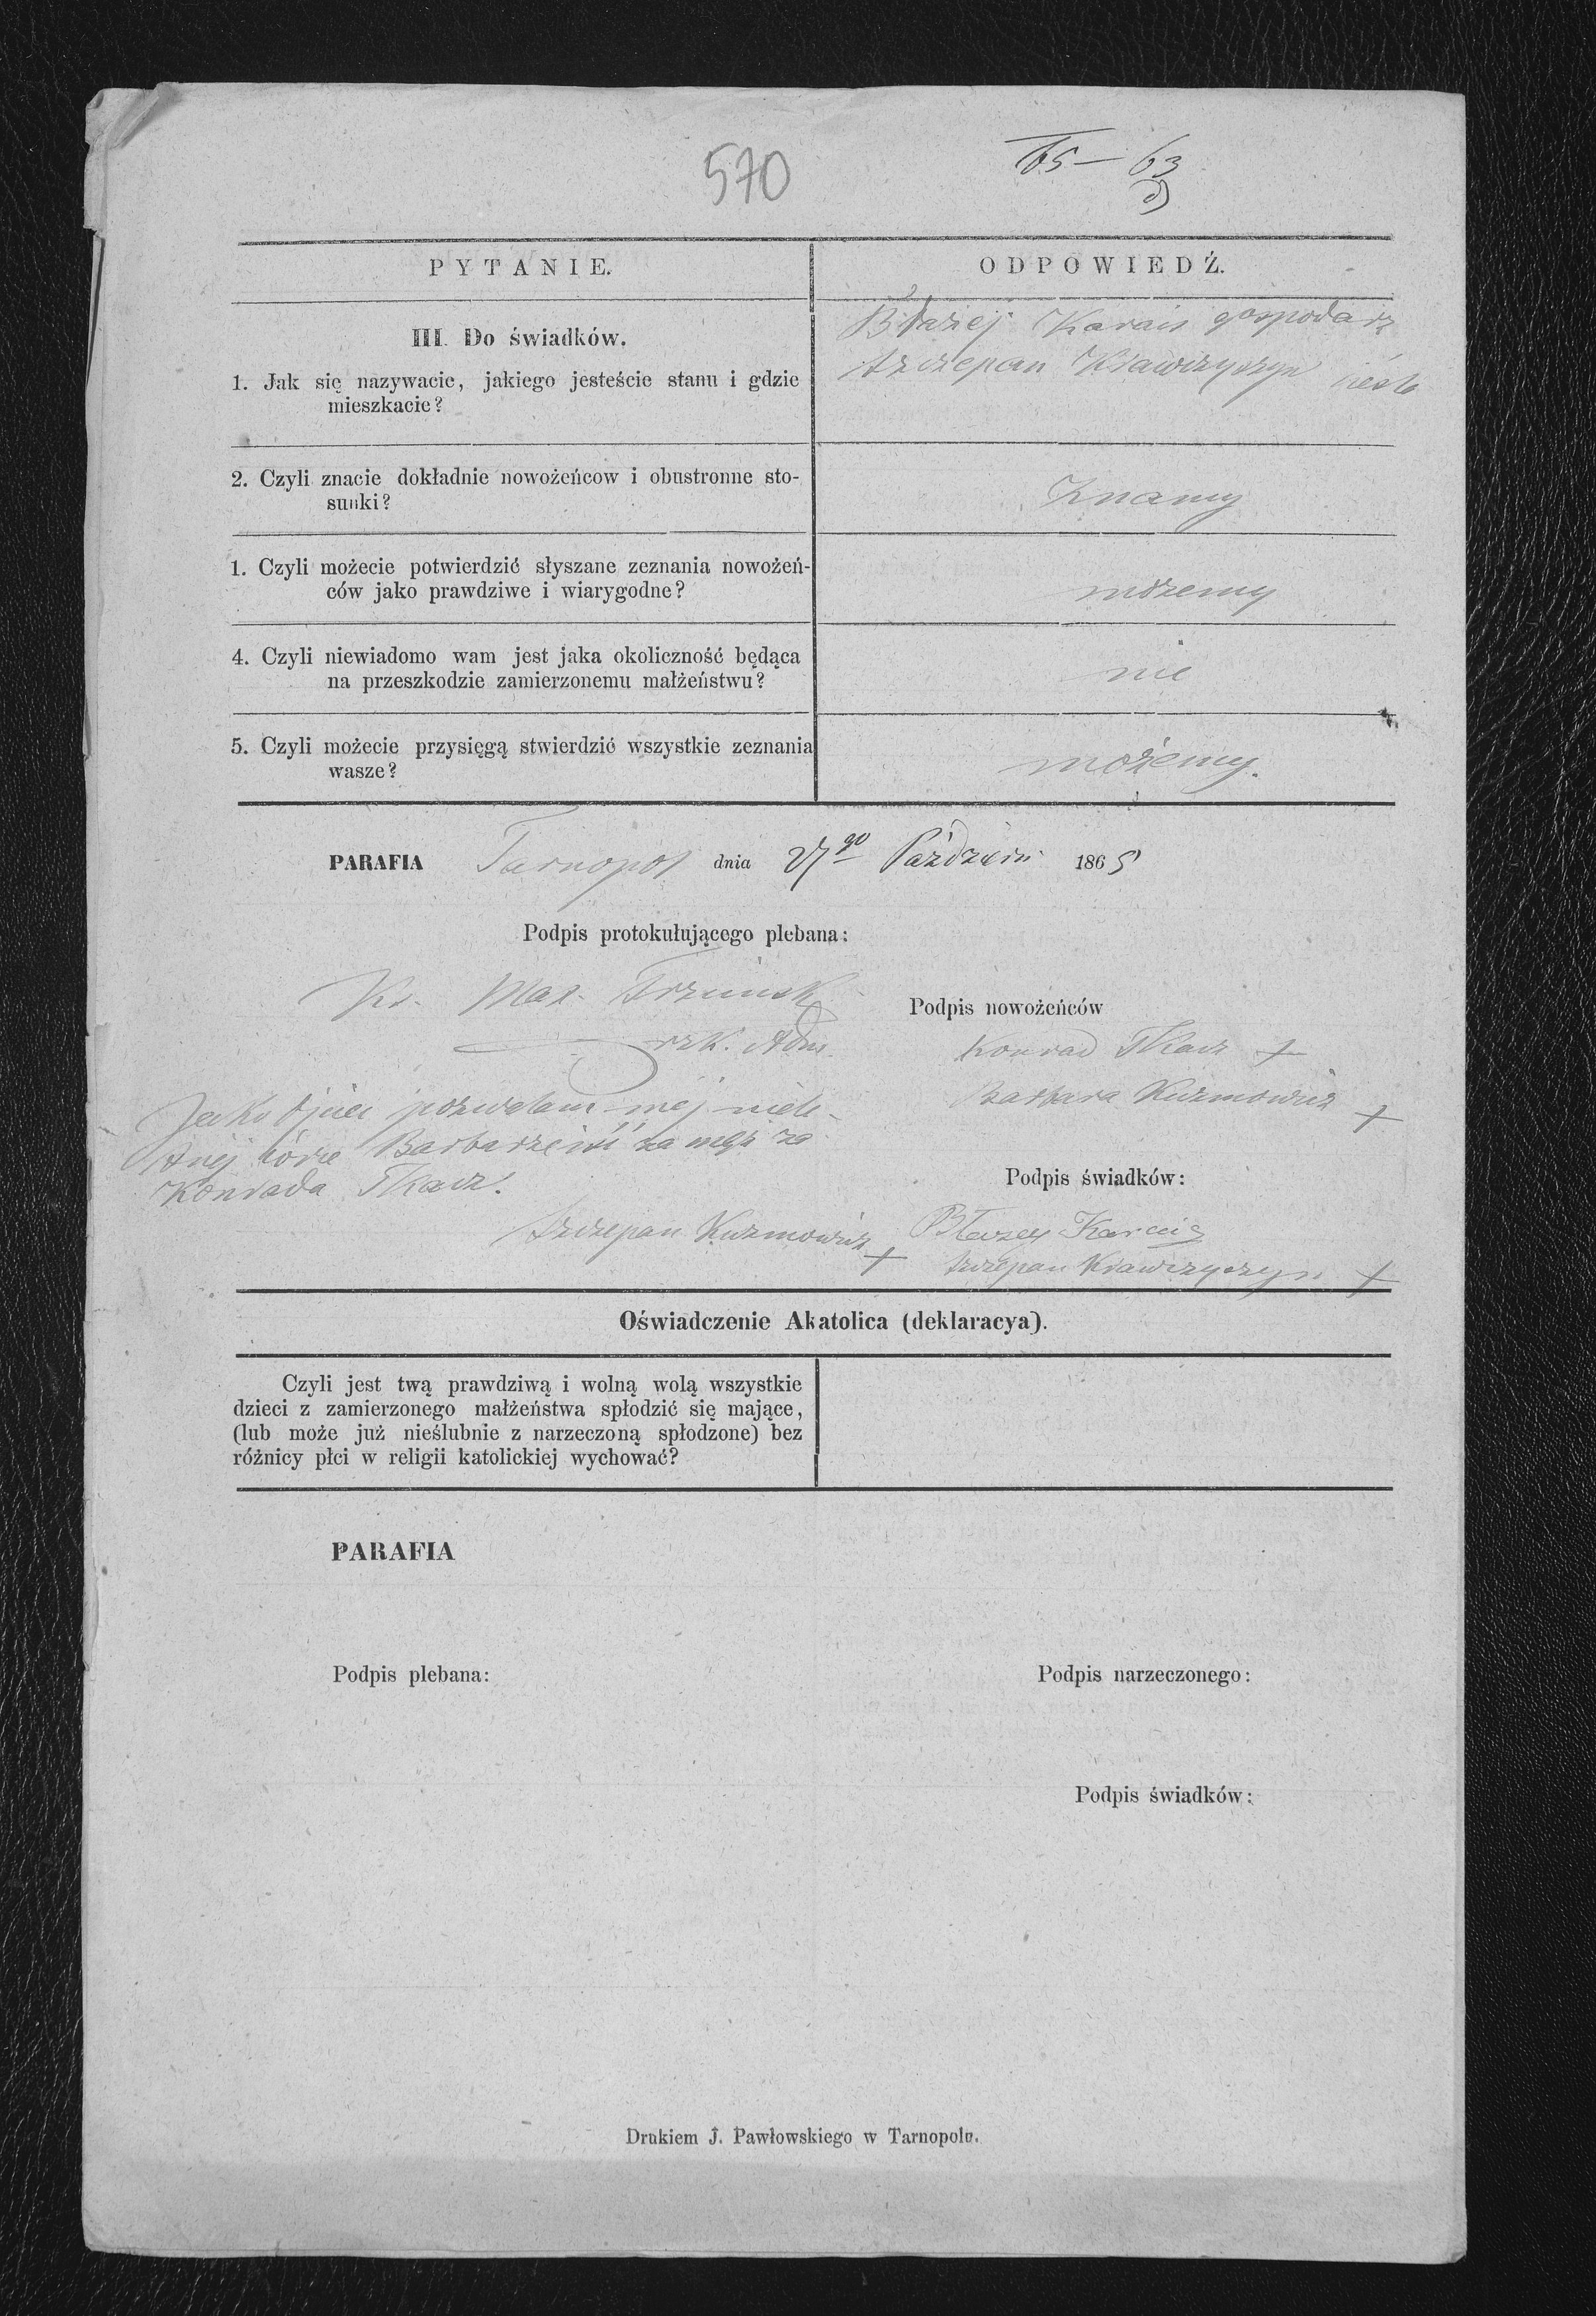 570
65 – 63
PYTANIE.
ODPOWIEDŹ.
III. Do świadków.
1. Jak się nazywacie, jakiego jesteście stanu i gdzie
mieszkacie?
Błażej gospodarz
Szczepan Krawczyszyn
2. Czyli znacie dokładnie nowożeńcow i obustronne sto-
sunki?
Znamy
1. Czyli możecie potwierdzić słyszane zeznania nowożeń-
ców jako prawdziwe i wiarygodne?
możemy
4. Czyli niewiadomo wam jest jaka okoliczność będąca
na przeszkodzie zamierzonemu małżeństwu?
nie
5. Czyli możecie przysięgą stwierdzić wszystkie zeznania
wasze?
możemy.
PARAFIA Tarnopol dnia Paździer 1865
Podpis protokułującego plebana:
Ks.
rzk. Adm.
Podpis nowożeńców
Konrad Tkacz +
Barbara Kuzmowicz +
Jako Ojciec pozwalam mej nielet-
córce Barbarze iść za mąż za
Konrada Tkacz.
Szczepan Kuzmowicz +
Podpis świadków:
Błażej
Szczepan Krawczyszyn +
Oświadczenie Akatolica (deklaracya).
Czyli jest twą prawdziwą i wolną wolą wszystkie
dzieci z zamierzonego małżeństwa spłodzić się mające,
(lub może już nieślubnie z narzeczoną spłodzone) bez
różnicy płci w religii katolickiej wychować?
PARAFIA
Podpis plebana:
Podpis narzeczonego:
Podpis świadków:
Drukiem J. Pawłowskiego w Tarnopolu.